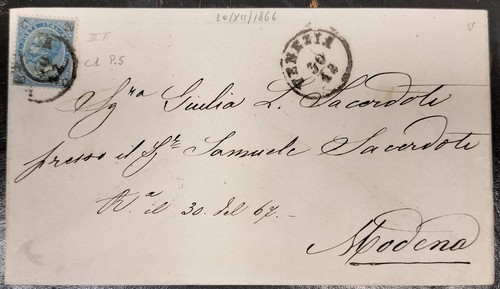 30/XII/1866
II T.
c1 P.5
VENEZIA
30
12
Sg.ra Giulia L. Sacerdoti
presso il Sg.re Samuele Sacerdoti
R.a il 30. del 67.-
Modena